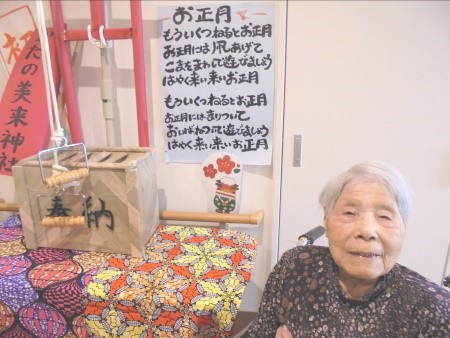 たの美来神社
奉納
お正月
もういくつねるとお正月
お正月には凧あげて
こまをまわして遊びましょう
はやく来い来いお正月
もういくつねるとお正月
お正月にはまりついて
おいばねついて遊びましょう
はやく来い来いお正月